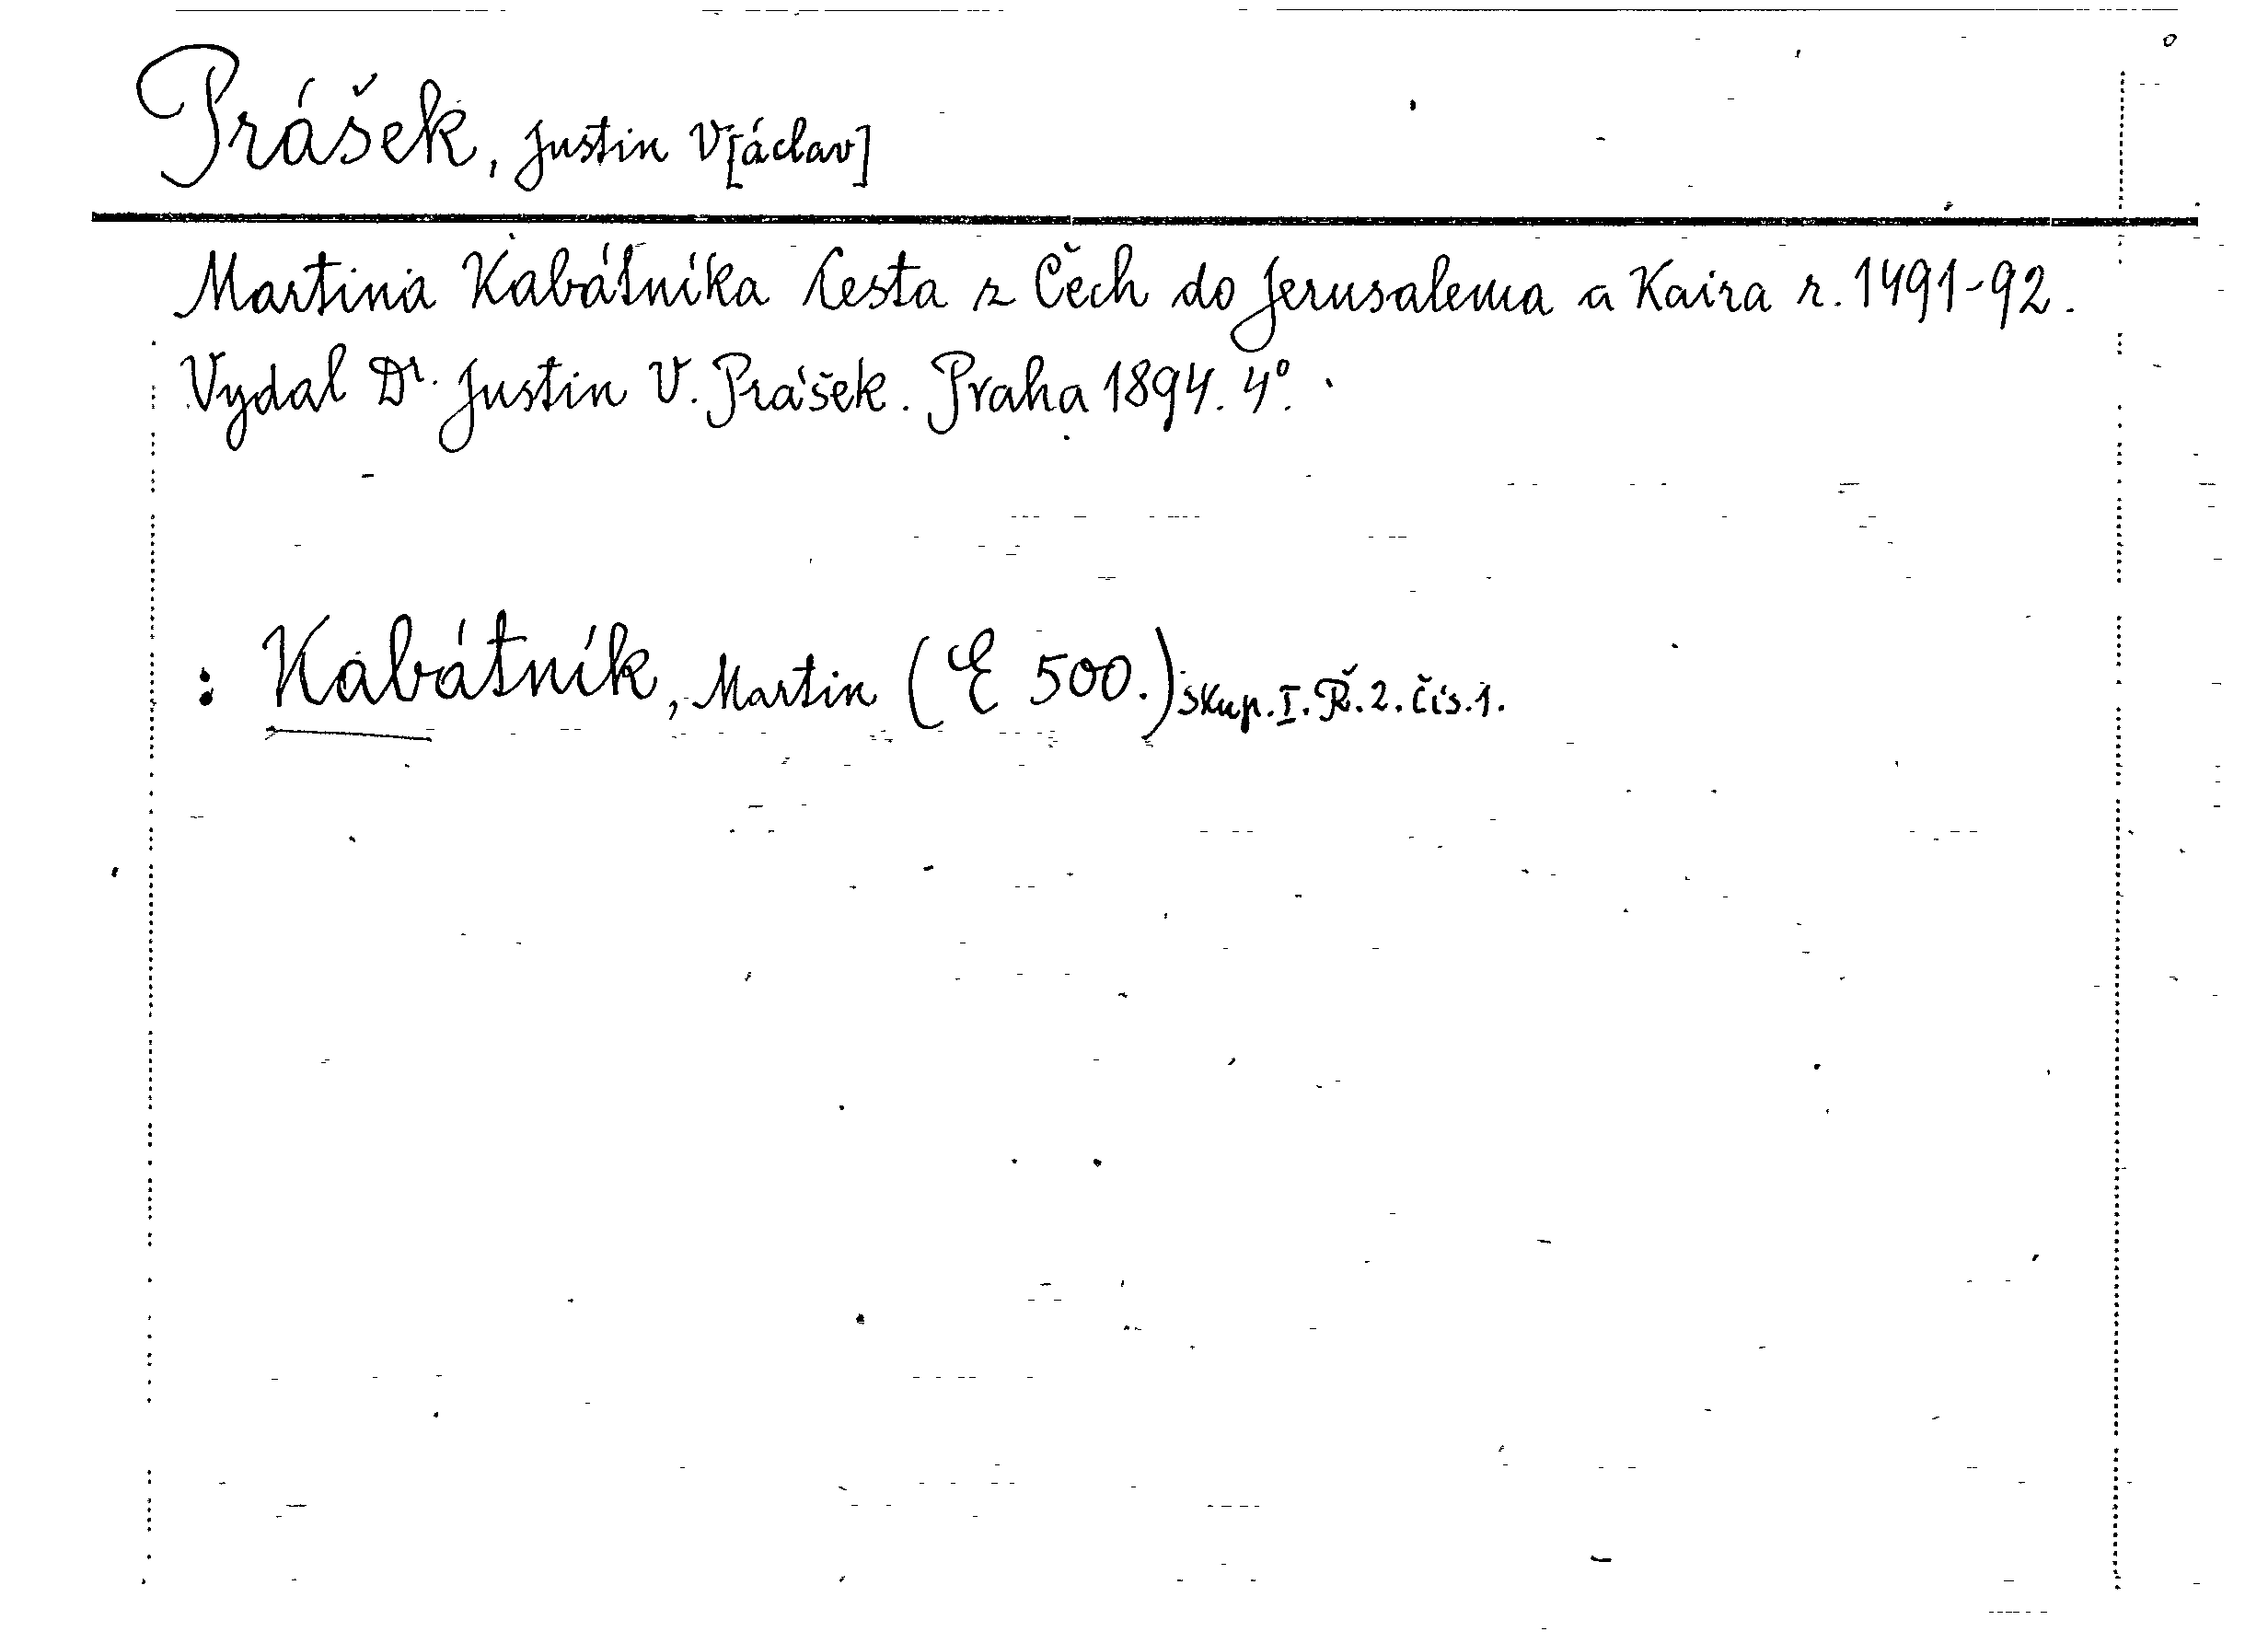 Prášek, Justin V[áclav]
Martina Kabátníka Cesta z Čech do Jerusalema a Kaira r. 1491-92.
Vydal Dr. Justin V. Prášek. Praha 1894. 4°.
: Kabátník, Martin (E 500.) skup. I. Ř. 2. čís. 1.